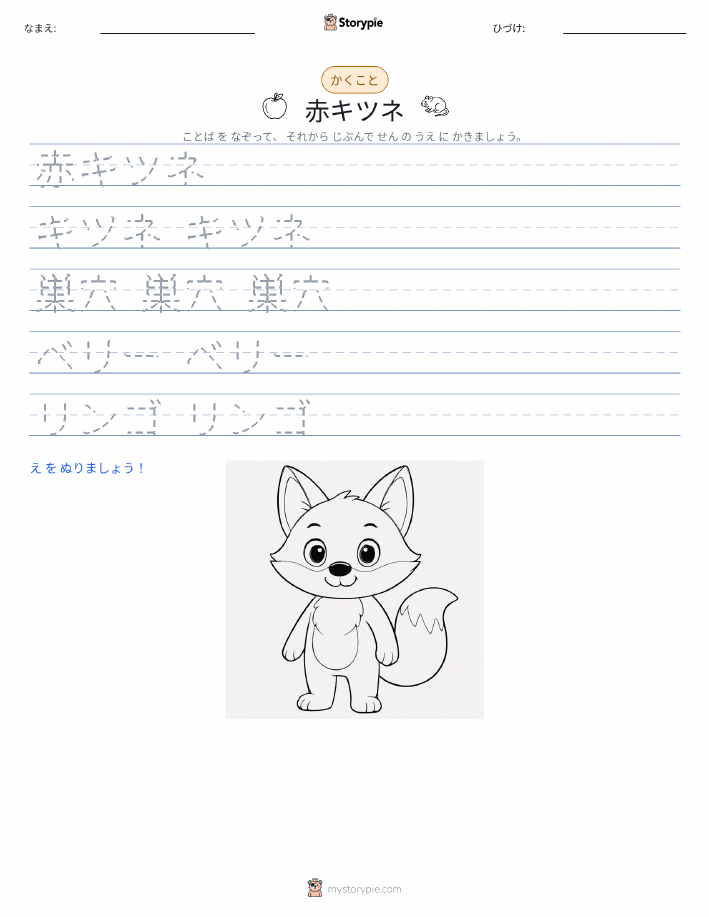 なまえ:
Storypie
ひづけ:
かくこと
赤キツネ
ことば を なぞって、 それから じぶんで せん の うえ に かきましょう。
赤キツネ
キツネ キツネ
巣穴 巣穴 巣穴
ベリー ベリー
リンゴ リンゴ
え を ぬりましょう！
mystorypie.com